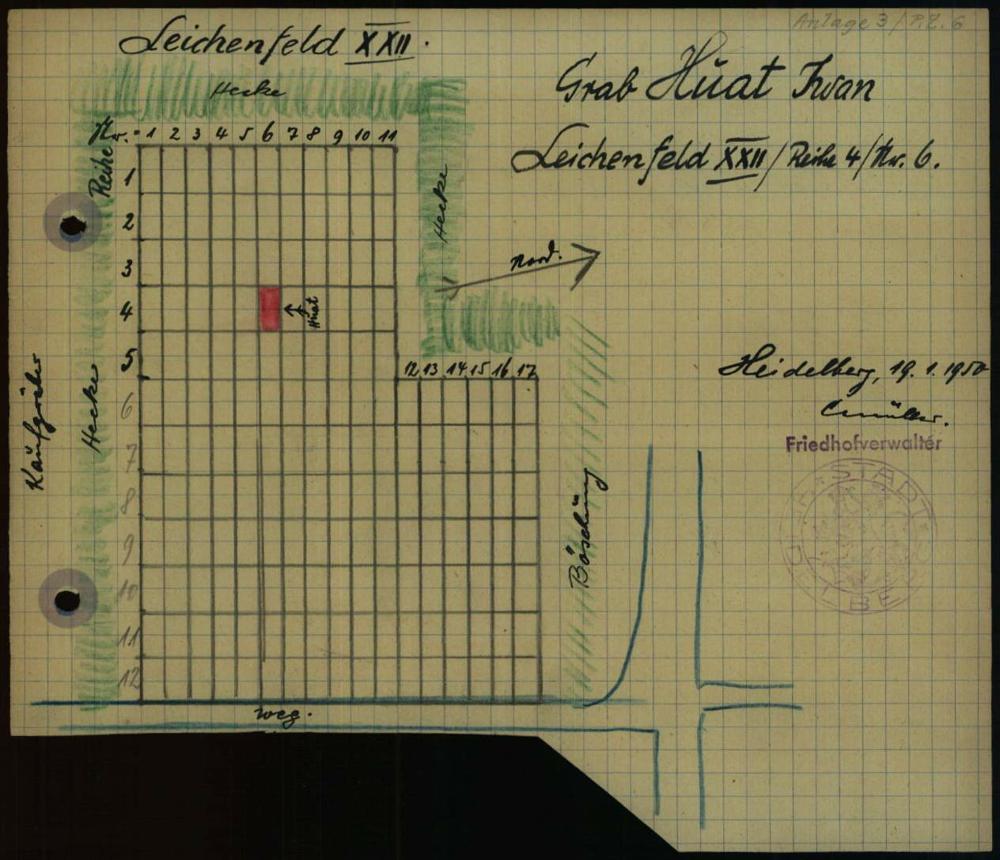 Anlage 3 / P.Z. 6
Leichenfeld XXII.
Grab Huat Iwan
Leichenfeld XXII / Reihe 4 / Nr. 6.
Hecke
Nr. 1 2 3 4 5 6 7 8 9 10 11
Reihe
1
2
3
4
5
6
7
8
9
10
11
12
Huat
Hecke
Nord.
12 13 14 15 16 17
Kaufgräber
Hecke
Böschung
Heidelberg, 19. 1. 1950
Friedhofverwalter
STADT
weg.